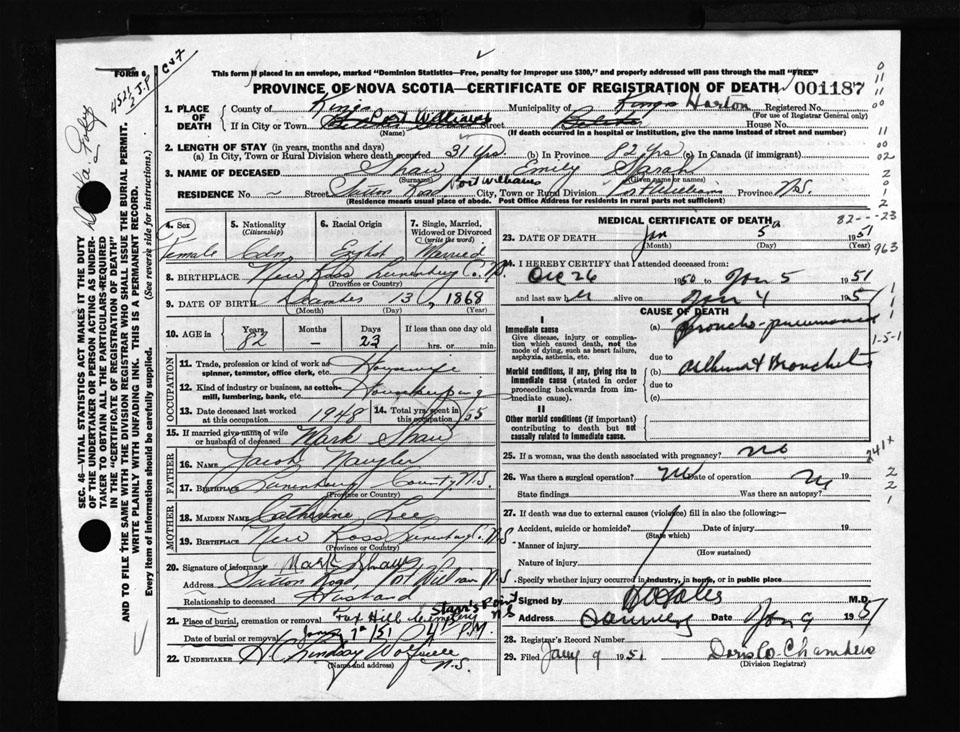 FORM 6
4521/2 J.P.
CV7
This form if placed in an envelope, marked "Dominion Statistics—Free, penalty for improper use $300," and properly addressed will pass through the mail "FREE"
PROVINCE OF NOVA SCOTIA—CERTIFICATE OF REGISTRATION OF DEATH 001187
1. PLACE OF DEATH
County of Kings Municipality of Kings Horton Registered No.
(For use of Registrar General only)
If in City or Town Port Williams Street House No.
(Name) (If death occurred in a hospital or institution, give the name instead of street and number)
2. LENGTH OF STAY (in years, months and days)
(a) In City, Town or Rural Division where death occurred 31 Yrs (b) In Province 82 Yrs (c) In Canada (if immigrant)
3. NAME OF DECEASED Shaw Emily
(Surname) (Given name or names)
RESIDENCE No. ~ Street Sutton Road Port Williams City, Town or Rural Division Port Williams Province N.S.
(Residence means usual place of abode. Post Office Address for residents in rural parts not sufficient)
4. Sex Female
5. Nationality (Citizenship) Cdn
6. Racial Origin English
7. Single, Married, Widowed or Divorced (write the word) Married
8. BIRTHPLACE New Ross Lunenburg Co. N.S.
(Province or Country)
9. DATE OF BIRTH December 13, 1868
(Month) (Day) (Year)
10. AGE in Years 82 Months – Days 23 If less than one day old hrs. or min.
OCCUPATION
11. Trade, profession or kind of work as spinner, teamster, office clerk, etc. Housewife
12. Kind of industry or business, as cotton-mill, lumbering, bank, etc. Housekeeping
13. Date deceased last worked at this occupation 1948 14. Total yrs. spent in this occupation 55
15. If married give name of wife or husband of deceased Mark Shaw
FATHER
16. Name Jacob Naugler
17. Birthplace Lunenburg County, N.S.
(Province or Country)
MOTHER
18. Maiden Name Catherine Lee
19. Birthplace New Ross Lunenburg Co. N.S.
(Province or Country)
20. Signature of informant Mark Shaw
Address Sutton Road Pt. William N.S.
Relationship to deceased Husband
21. Place of burial, cremation or removal Fox Hill Cemetery Starr's Point N.S.
Date of burial or removal Jany 7th/51 P.M.
22. UNDERTAKER H C Lindsay Wolfville N.S.
(Name and address)
MEDICAL CERTIFICATE OF DEATH
82---23
23. DATE OF DEATH Jan 5 1951
(Month) (Day) (Year)
963
24. I HEREBY CERTIFY that I attended deceased from:
Dec 26 1950 to Jan 5 1951
and last saw h er alive on Jan 4 1951
CAUSE OF DEATH
I
Immediate cause
Give disease, injury or complication which caused death, not the mode of dying, such as heart failure, asphyxia, asthenia, etc.
(a) Broncho-pneumonia
due to
1-5-1
Morbid conditions, if any, giving rise to immediate cause (stated in order proceeding backwards from immediate cause).
(b) Bronchitis
due to
(c)
II
Other morbid conditions (if important) contributing to death but not causally related to immediate cause.
25. If a woman, was the death associated with pregnancy? No
241+
26. Was there a surgical operation? No Date of operation 19
State findings Was there an autopsy?
27. If death was due to external causes (violence) fill in also the following:—
Accident, suicide or homicide? Date of injury 19
(State which)
Manner of injury
(How sustained)
Nature of injury
Specify whether injury occured in industry, in home, or in public place
Signed by M.D.
Address Canning Date Jan 9 1951
28. Registrar's Record Number
29. Filed Jany 9 1951 Doris Co. Chambers
(Division Registrar)
SEC. 46—VITAL STATISTICS ACT MAKES IT THE DUTY
OF THE UNDERTAKER OR PERSON ACTING AS UNDER-
TAKER TO OBTAIN ALL THE PARTICULARS REQUIRED
IN THE "CERTIFICATE OF REGISTRATION OF DEATH"
AND TO FILE THE SAME WITH THE DIVISION REGISTRAR WHO SHALL ISSUE THE BURIAL PERMIT.
WRITE PLAINLY WITH UNFADING INK. THIS IS A PERMANENT RECORD.
Every item of information should be carefully supplied. (See reverse side for instructions.)